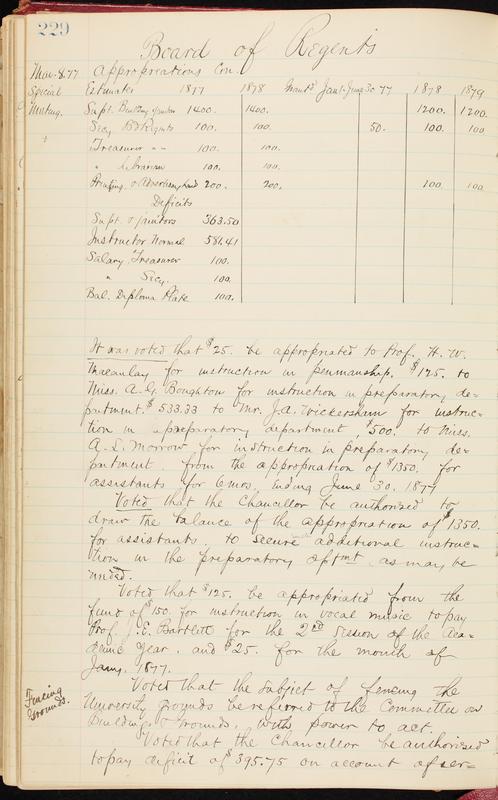 229
Board of Regents
Mar. 8.77 Appropriations Con.
Special Estimates 1877 1878 Jan 1 - June 30 77 1878 1879
Meeting. Supt. Building & Janitor 1400. 1400. 1200. 1200.
Secy. Bd Regents 100. 100. 50. 100. 100.
Treasurer " " 100. 100.
" Librarian 100. 100.
Printing & Advertising 200. 200. 100 100.
Deficits
Supt. & janitors 363.50
Instructor Normal 581.41
Salary, Treasurer 100.
" Secy. 100.
Bal. Diploma Plate 100.
It was voted that $25. be appropriated to Prof. H. W.
Macaulay for instruction in penmanship, $125. to
Miss. A. G. Boughton for instruction in preparatory de=
partment. $533.33 to Mr. J. A. Wickersham for instruc=
tion in preparatory department, $500. to Miss.
A. L. Morrow for instruction in preparatory de=
partment. from the appropriation of $1350. for
assistants for 6 mos. ending June 30. 1877
Voted that the Chancellor be authorized to
draw the balance of the appropriation of $1350.
for assistants, to secure additional instruc=
tion in the preparatory as may be
needed.
Voted that $125. be appropriated from the
fund of $150. for instruction in vocal music to pay
Prof. J. E. Bartlett for the 2nd Session of the Aca=
demic Year. and $25. for the month of
Jany. 1877.
Fencing
Grounds.
Voted that the subject of fencing the
University grounds be referred to the Committee on
Buildings & Grounds, with power to act.
Voted that the Chancellor be authorized
to pay deficit of $395.75 on account of ser=